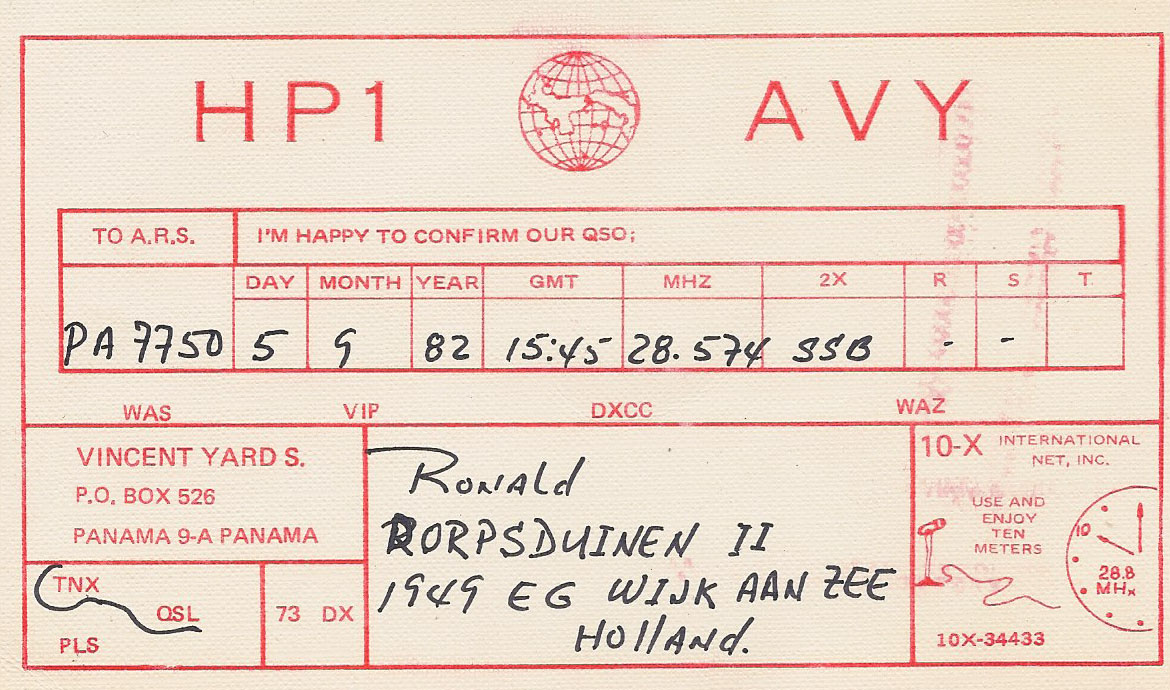 HP1 AVY
TO A.R.S. I'M HAPPY TO CONFIRM OUR QSO;
DAY MONTH YEAR GMT MHZ 2X R S T
PA 7750 5 9 82 15:45 28.574 SSB - -
WAS VIP DXCC WAZ
VINCENT YARD S.
P.O. BOX 526
PANAMA 9-A PANAMA
TNX
QSL
PLS
73 DX
Ronald
DORPSDUINEN II
1949 EG WIJK AAN ZEE
Holland.
10-X INTERNATIONAL
NET, INC.
USE AND
ENJOY
TEN
METERS
10
28.8
MHx
10X-34433